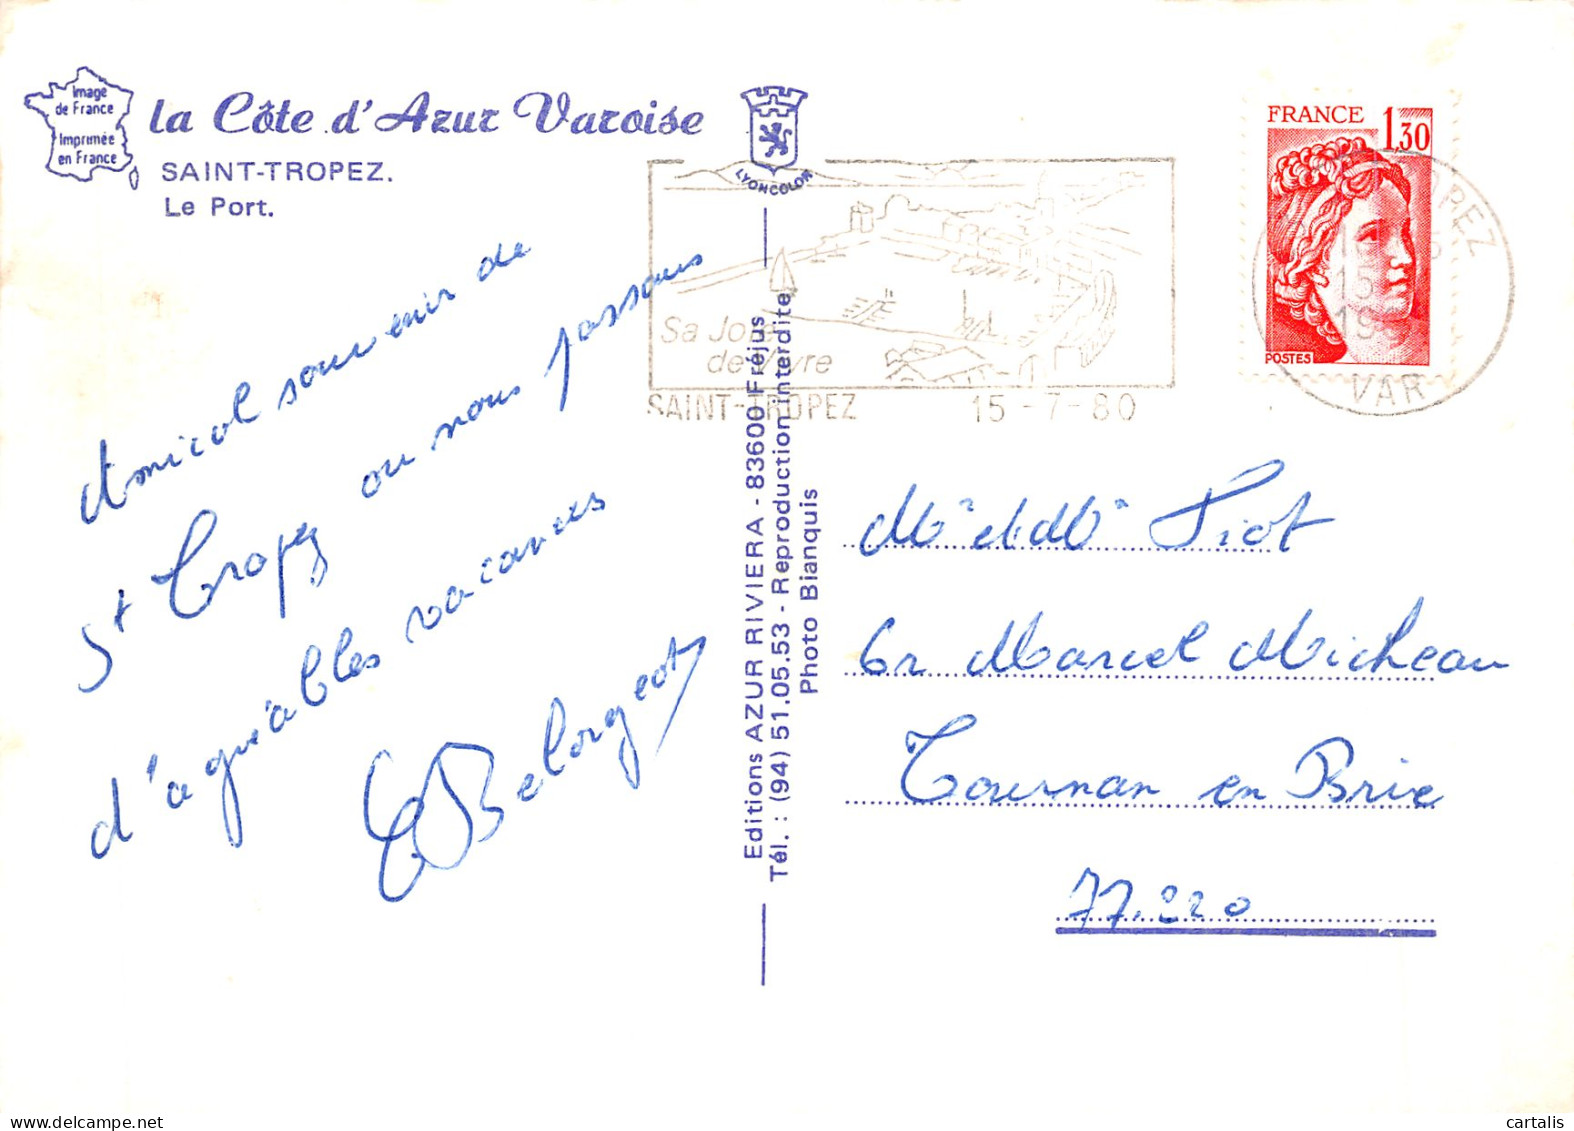 Image
de France
Imprimée
en France
la Côte d'Azur Varoise
SAINT-TROPEZ.
Le Port.
LYONCOLOR
FRANCE 1,30
POSTES
OPEZ
15
19
VAR
Sa Joie
de Vivre
SAINT-TROPEZ 15-7-80
Amical souvenir de
St Tropez ou nous passons
d'agréables vacances
Belorgeot
Editions AZUR RIVIERA - 83600 Fréjus
Tél. : (94) 51.05.53 - Reproduction interdite
Photo Bianquis
Mr et Mme Piot
6 r Marcel Micheau
Tournan en Brie
77.220
cartalis